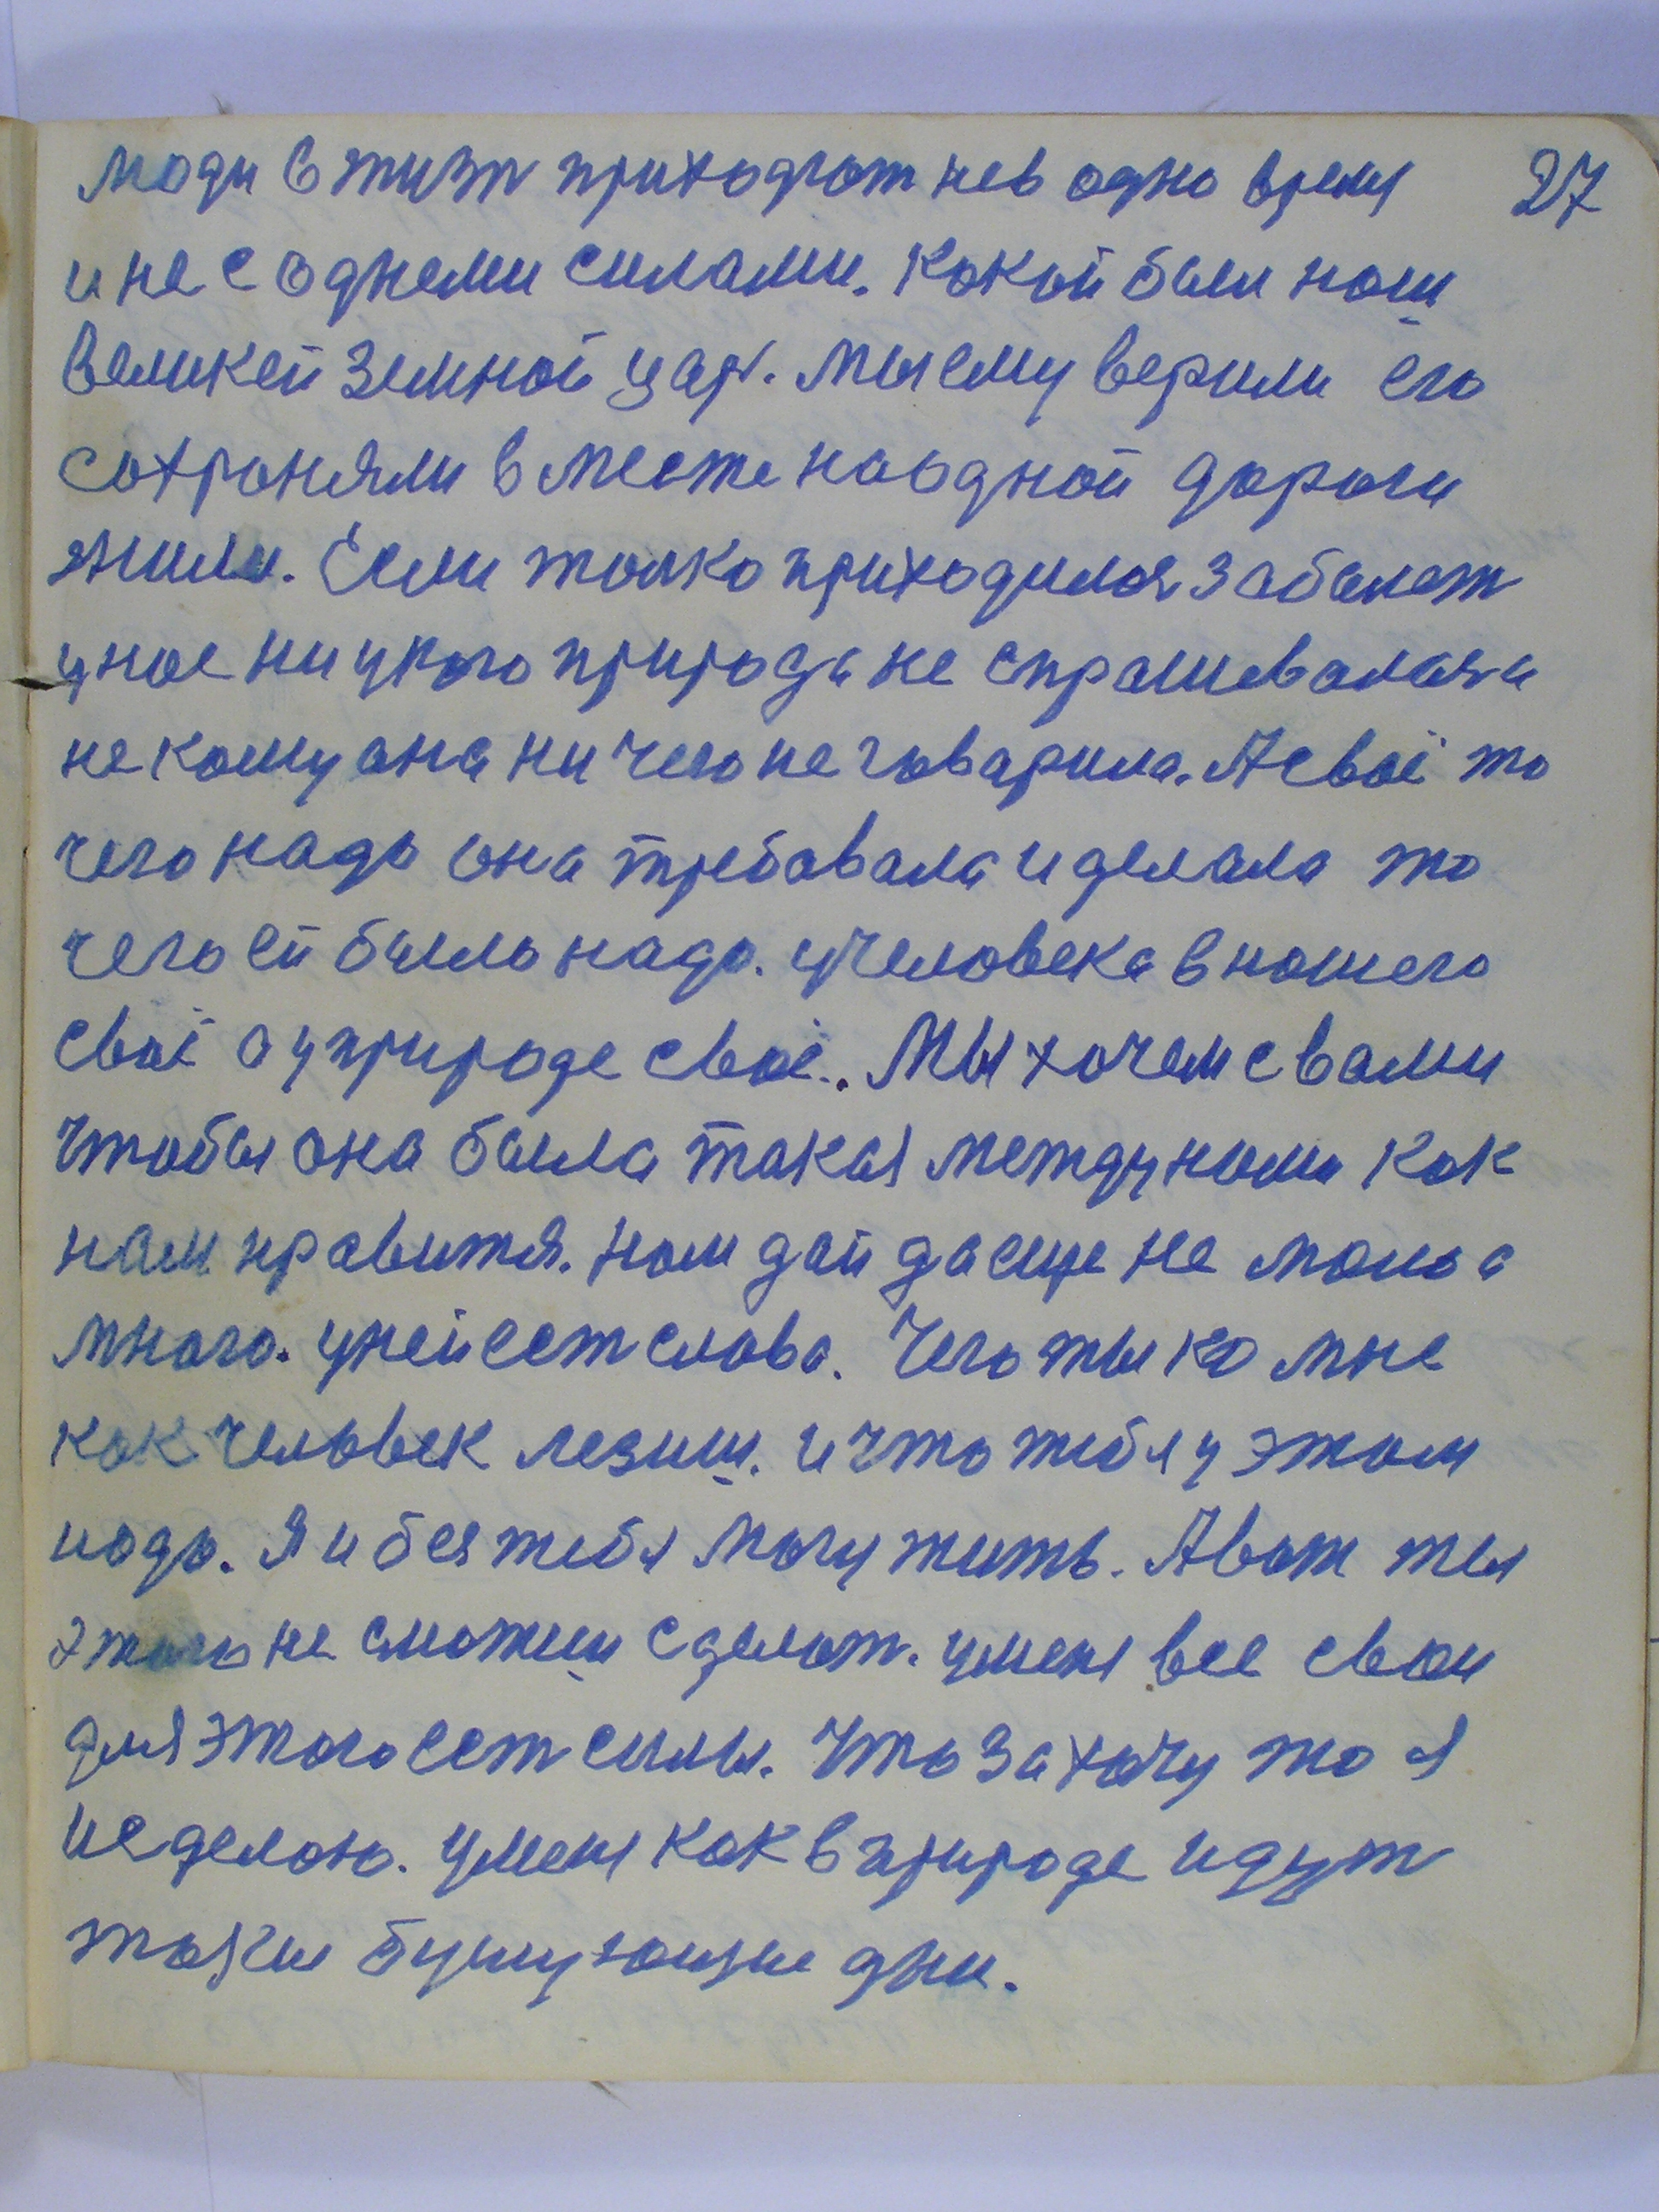 люди в жизн приходют нев одно время 27
и не с однеми силами. Какой был наш
великей земной цар. мы ему верили его
сохроняли вместе наодной дороги
жили. Если толко приходился заболет
унас ни укого природа не спрашивалася
некому она ни чего не говарила. А своё то
чего надо она требавала и делала то
чего ей было надо. учеловека внашего
своё а уприроде своё. Мы хочем свами
чтобы она была такая между нами как
нам нравится. нам дай даеще не мало а
много. уней ест слово. Чего ты ко мне
как человек лезиш. и что тебя у этом
надо. Я и без тебя могу жить. А вот ты
этого не сможиш сделат. уменя все свои
для этого ест силы. Что захочу то я
и сделаю. уменя как в природе идут
такие бушующие дни.